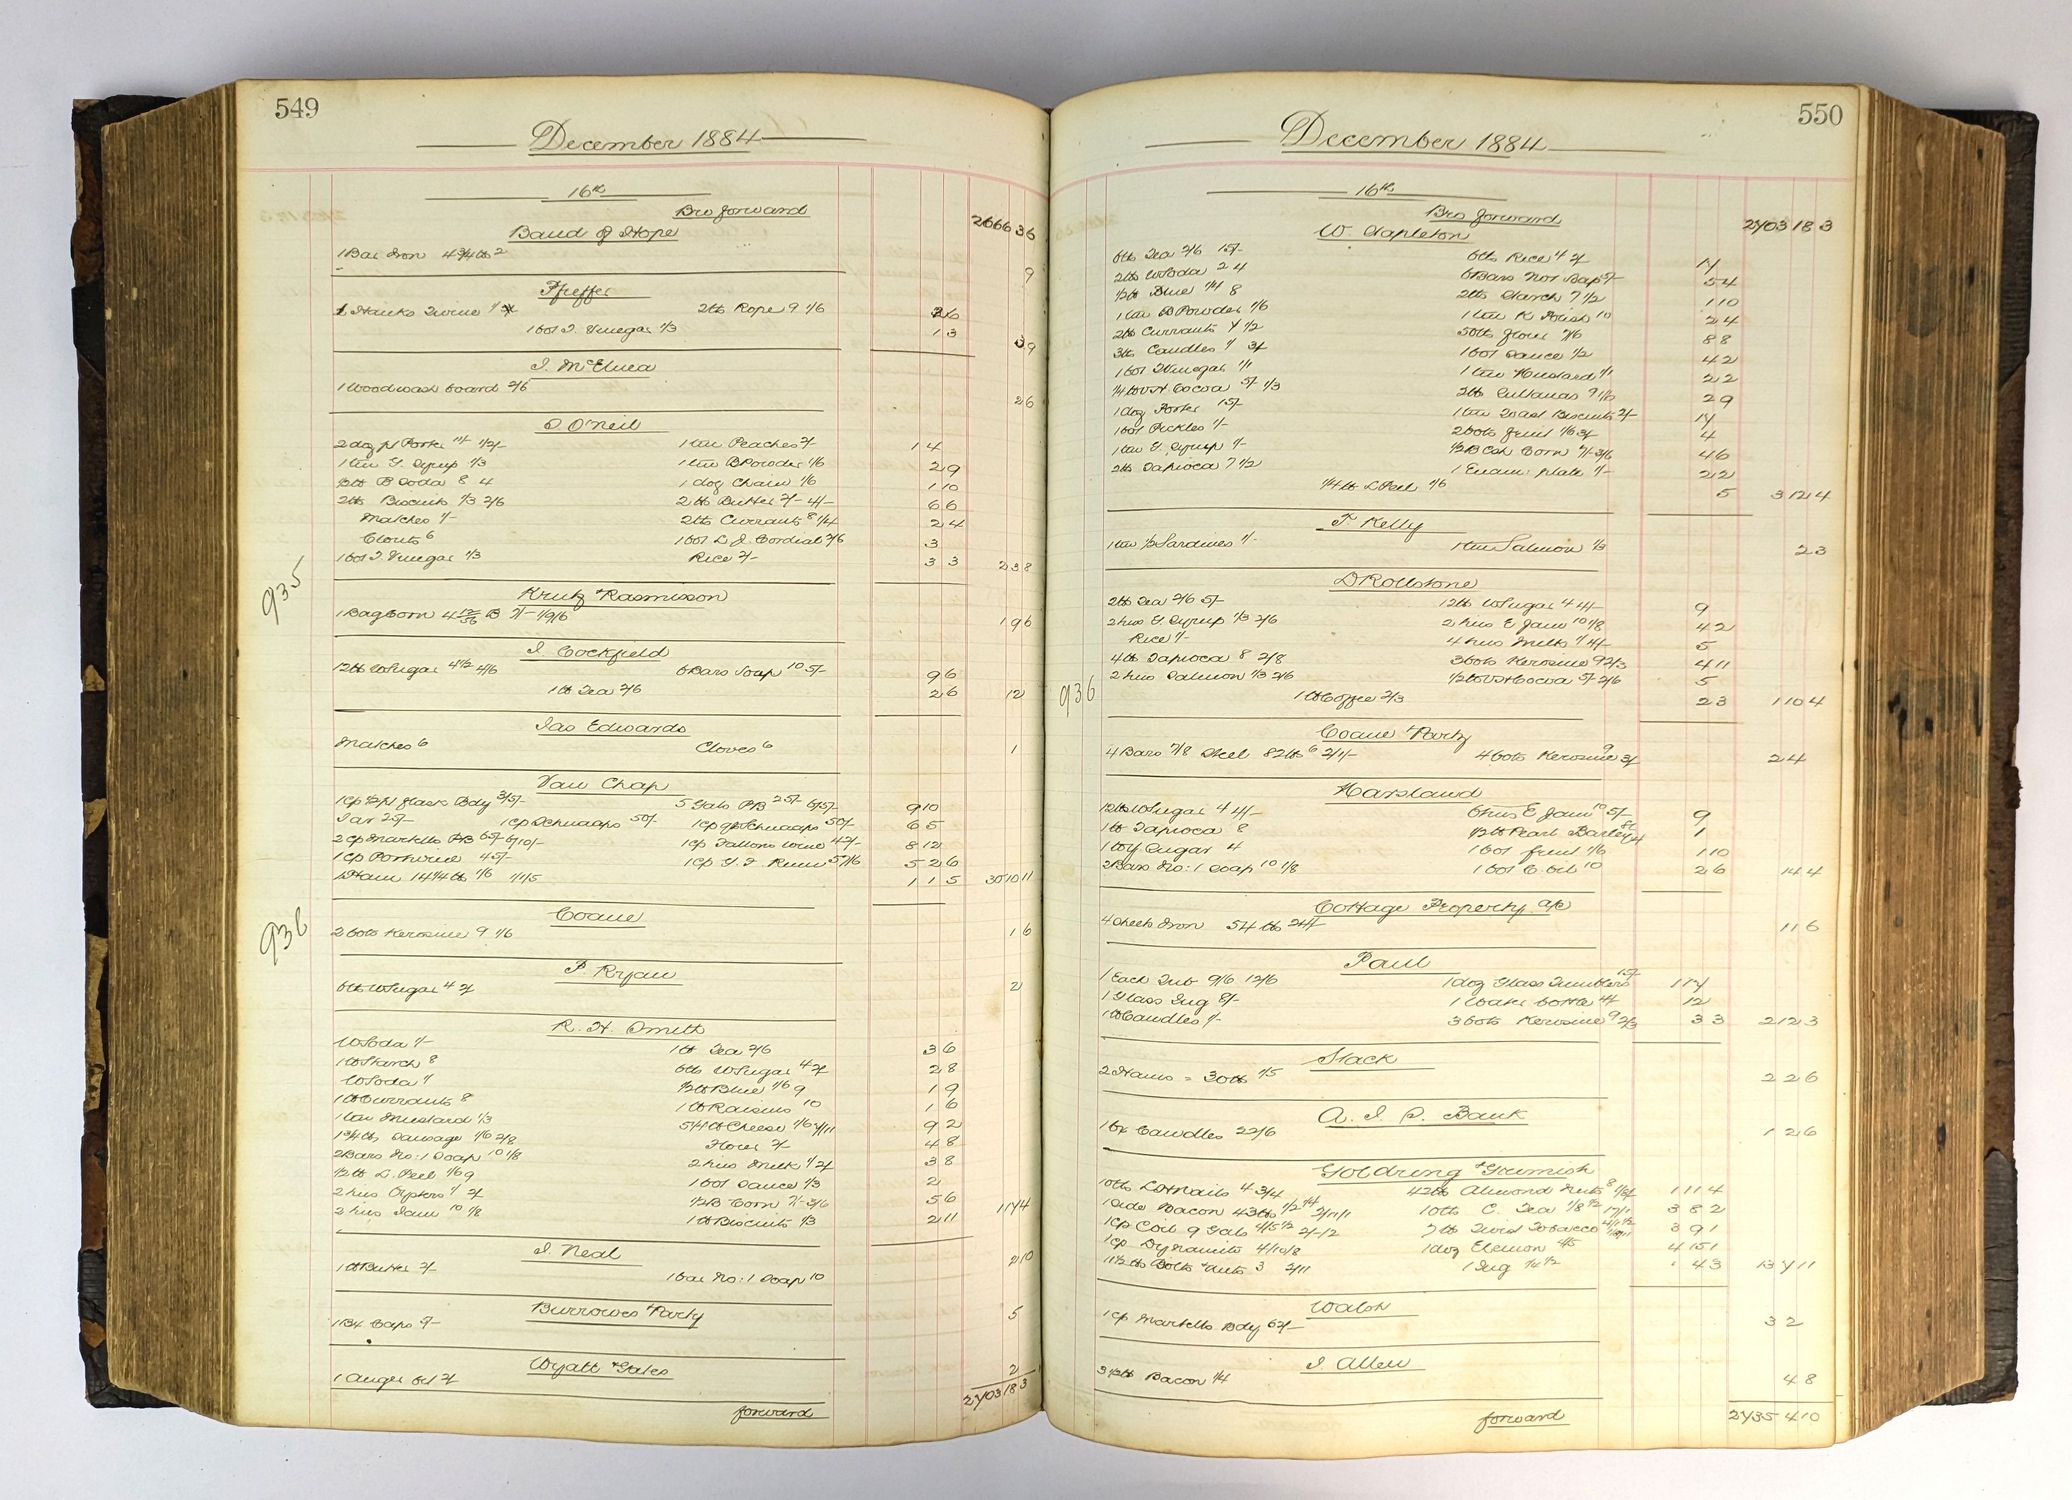 549
December 1884
16th
Bro forward 2666 3 6
Band of Hope
1 Bar Iron 4¾ lb 2 9
Pfeffer
Hanks Twine 2 lb Rope 9 1/6 2 6
1 bot T. Vinegar 1/3 1 3 3 9
J. McElwea
1 Wood wash board 2/6 2 6
O'Neil
2 doz pt Porter 1 tin Peaches 2/ 1 4
1 tin G. Syrup 1/3 1 tin B Powder 1/6 2 9
½ lb B Soda 8 4 1 doz Chain 1/6 1 10
2 lb Biscuits 1/3 2/6 2 lb Butter 2/- 4/- 6 6
Matches 1/- 2 lb Currants 8 1/4 2 4
Clouts 6 1 bot L. J. Cordial 2/6 3
1 bot T. Vinegar 1/3 Rice 2/- 3 3 2 3 8
935
Krutz & Rasmisson
1 Bag Corn 4 12/56 B 1 9 6
J. Cockfield
12 lb W Sugar 4½ 4/6 6 Bars Soap 10 5/- 9 6
1 lb Tea 2/6 2 6 12
Jas Edwards
Matches 6 Cloves 6 1
Yau Chap
1 cp ½ pt flask Bdy 3/5/- 5 Gals PB 25/- 6/5/- 9 10
Jar 25/- 1 cp Schnapps 50/- 1 cp qt Schnapps 50/- 6 5
2 cp Martells PB 65/- 6/10/- 1 cp Fallons wine 42/- 8 12
1 cp Pomerine 45/- 1 cp G. F. Rum 57/6 5 2 6
1 Ham 14¼ lb 1/6 1/1/5 1 1 5 30 10 11
936
Coane
2 bots Kerosine 9 1/6 1 6
P Ryan
6 lb W Sugar 4 2/ 2
R. H. Smith
W Soda 1/- 1 lb Tea 2/6 3 6
1 lb Starch 8 6 lb W Sugar 4 2/ 2 8
W Soda 1/ ½ lb Blue 1/6 9 1 9
1 lb Currants 8 1 lb Raisins 10 1 6
1 tin Mustard 1/3 5¼ lb Cheese 1/6 7/11 9 2
1¾ lb Sausage 1/6 2/8 Flour 2/ 4 8
2 Bars No: 1 Soap 10 1/8 2 tins Milk 1/ 2/ 3 8
½ lb L. Peel 1/6 9 1 bot Sauce 1/3 2
2 tins Oysters 1/ 2/ ½ B Corn 7/- 3/6 5 6
2 tins Jam 10 1/8 1 lb Biscuits 1/3 2 11 1 17 4
J. Neal
1 lb Butter 2/- 1 bar No: 1 Soap 10 2 10
Burrowes & Party
1 Bx Caps 5/- 5
Wyatt & Gales
1 Auger bit 2/ 2
forward 2703 18 3
550
December 1884
16th
Bro forward 2703 18 3
W. Stapleton
6 lb Tea 2/6 15/- 6 lb Rice 4 2/ 17
2 lb W Soda 2 4 6 Bars No 1 Soap 5/- 5 4
½ lb Blue 1/4 8 2 lb Starch 7 1/2 1 10
1 tin B Powder 1/6 1 tin K Polish 10 2 4
2 lb Currants 7 1/2 50 lb flour 7/6 8 8
3 lb Candles 1/ 3/ 1 bot Sauce 1/2 4 2
1 bot Vinegar 1/1 1 tin Mustard 1/1 2 2
¼ lb V H Cocoa 5/ 1/3 2 lb Sultanas 9 1/6 2 9
1 doz Porter 15/- 1 tin Toast Biscuits 2/- 17
1 bot Pickles 1/- 2 bots fruit 1/6 3/ 4
1 tin G. Syrup 1/- ½ B Csh Corn 7/- 3/6 4 6
2 lb Tapioca 7 1/2 1 Enam: plate 1/- 2 2
¼ lb L Peel 1/6 5 3 12 4
P Kelly
1 tin ½ Sardines 1/- 1 tin Salmon 1/3 2 3
D Rollstone
2 lb Tea 2/6 5/- 12 lb W Sugar 4 4/- 9
2 tins G Syrup 1/3 2/6 2 tins E Jam 10 1/8 4 2
Rice 1/- 4 tins Milk 1/ 4/- 5
4 lb Tapioca 8 2/8 3 bots Kerosine 9 2/3 4 11
2 tins Salmon 1/3 2/6 ½ lb V H Cocoa 5/ 2/6 5
936
1 lb Coffee 2/3 2 3 1 10 4
Coane & Party
4 Bars 7/8 Steel 82 lb 6 2/1/- 4 bots Kerosine 9 3/ 2 4
Harsland
12 lb W Sugar 4 4/- 6 tins E Jam 10 5/- 9
1 lb Tapioca 8 ½ lb Pearl Barley 8 4 1
1 lb Y Sugar 4 1 bot fruit 1/6 1 10
2 Bars No: 1 Soap 10 1/8 1 bot C. Oil 10 2 6 14 4
Cottage Property a/c
4 Sheets Iron 54 lb 24/ 11 6
Paul
1 Each Tub 9/6 12/6 1 doz Glass Tumblers 15/- 1 17
1 Glass Jug 8/- 1 Water bottle 4/ 12
1 lb Candles 1/- 3 bots Kerosine 9 2/3 3 3 2 12 3
Slack
2 Hams = 30 lb 1/5 2 2 6
A. J. S. Bank
1 bx Candles 22/6 1 2 6
Goldring & Gremish
10 lb L H Nails 4 3/4 42 lb Almond Nuts 8 1/8/ 1 11 4
1 side Bacon 43 lb 10 lb C. Tea 1/8½ 17/1 3 8 2
1 cp C oil 9 Gals 4/5½ 2/-/2 7 lb Twist Tobacco 3 9 1
1 cp Dynamite 4/10/8 1 doz 4/5 4 15 1
11½ lb Bolts & Nuts 3 2/11 1 Jug 1/4½ 4 3 13 7 11
Walsh
1 cp Martells Bdy 62/- 3 2
J. Allen
3½ lb Bacon 1/4 4 8
forward 2735 4 10